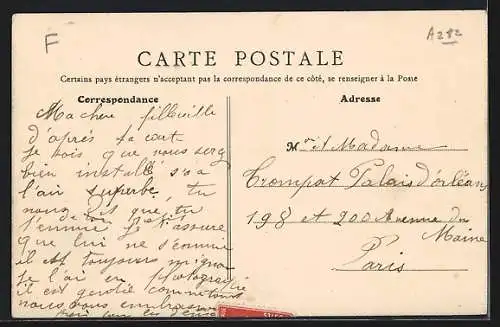 F
A282
CARTE POSTALE
Certains pays étrangers n'acceptant pas la correspondance de ce côté, se renseigner à la Poste
Correspondance
Adresse
Ma chere filleville
d'après ta cart
je vois que nous serg
bien installé s'a a
l'air superbe tu
nous dit que tu
t'ennuie je t'assure
que lui ne s'ennuie
il est toujours mignon
je l'ai en photografie
il est gentil comme tout
nous vous embrasson
Mr et Madame
Trompat Palais d'orléans
198 et 200 Avenue du
Maine
Paris